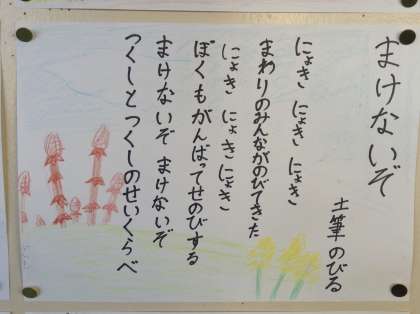 まけないぞ
土筆のびる
にょき にょき にょき
まわりのみんながのびてきた
にょき にょき にょき
ぼくもがんばってせのびする
まけないぞ まけないぞ
つくしとつくしのせいくらべ